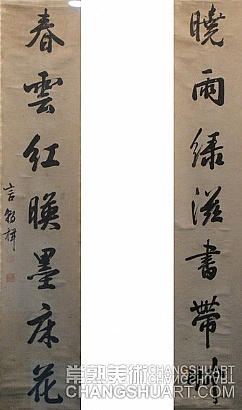 曉雨綠滋書帶草
春雲紅暎墨床花
常熟美術 CHANGSHUART
CHANGSHUART.COM